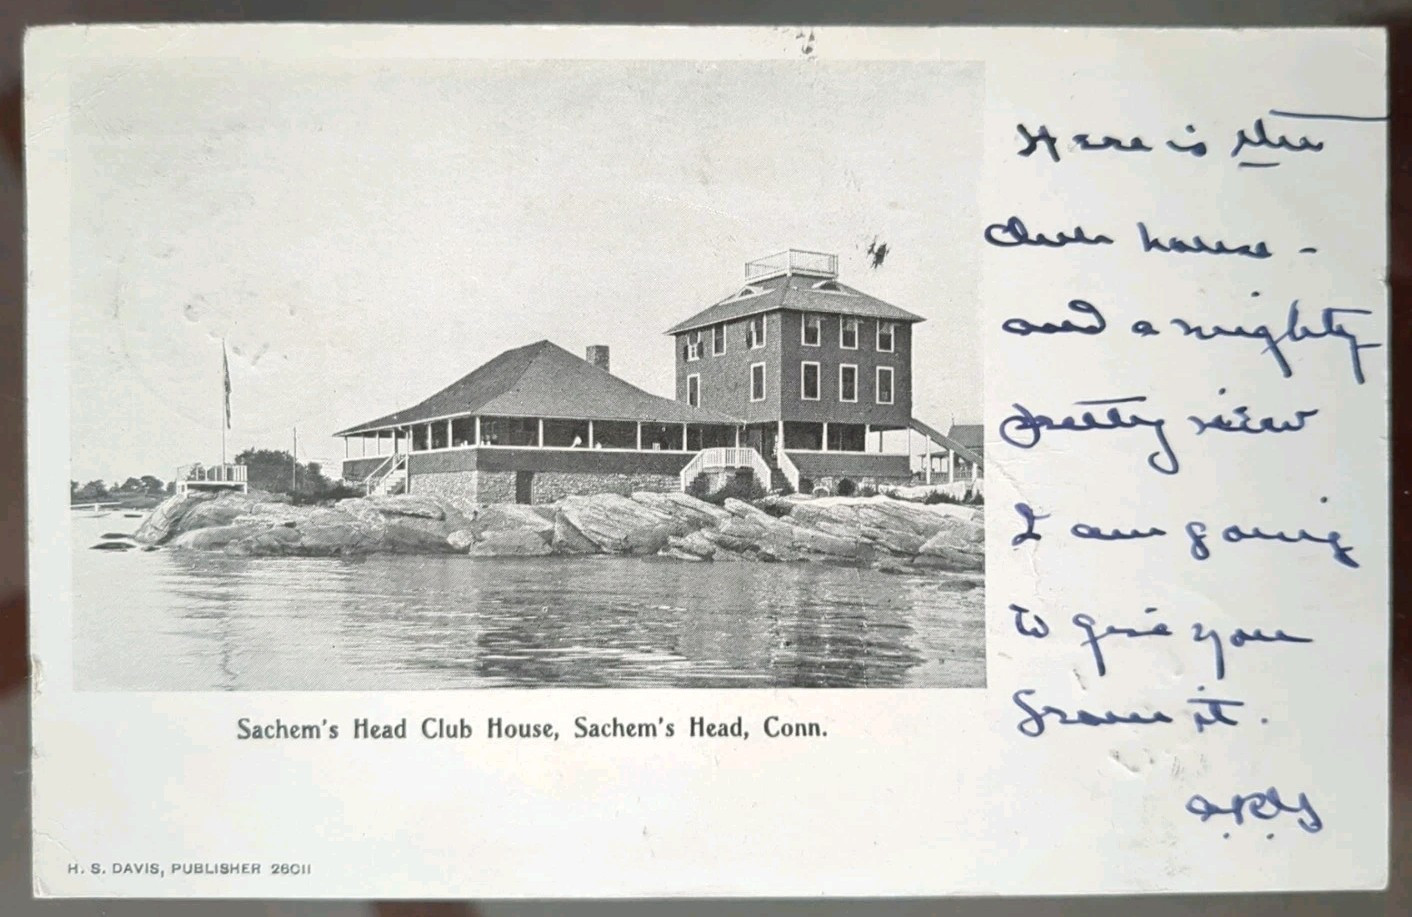 Here is the
club house -
and a mighty
pretty view
I am going
to give you
from it.
Sachem's Head Club House, Sachem's Head, Conn.
H. S. DAVIS, PUBLISHER 26011